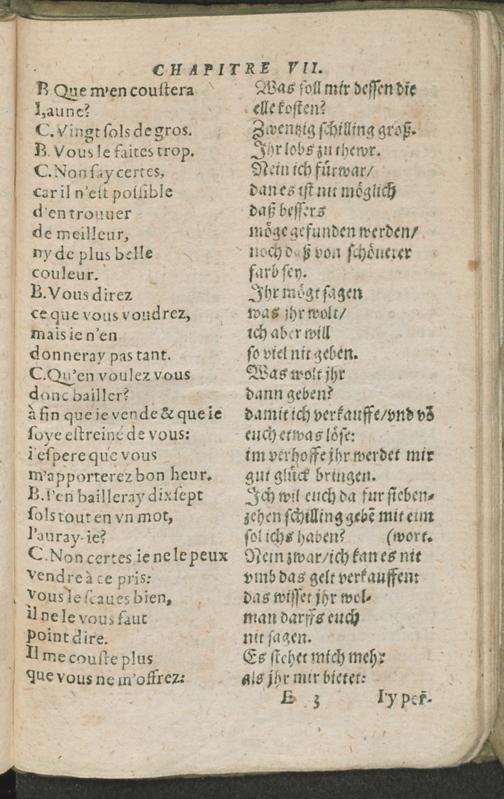 CHAPITRE VII.
B Que m'en coustera
l,aune?
C. Vingt sols de gros.
B. Vous le faites trop.
C. Non say certes,
car il n'est possible
d'en trouuer
de meilleur,
ny de plus belle
couleur.
B. Vous direz
ce que vous voudrez,
mais ie n'en
donneray pas tant.
C. Qu'en voulez vous
donc bailler?
à fin que ie vende & que ie
soye estreiné de vous:
i'espere que vous
m'apporterez bon heur.
B. I'en bailleray dixsept
sols tout en vn mot,
l'auray-ie?
C. Non certes ie ne le peux
vendre à ce pris:
vous le scaues bien,
il ne le vous faut
point dire.
Il me couste plus
que vous ne m'offrez:
Was soll mir dessen die
elle kosten?
Zwentzig schilling groß.
Ihr lobs zu thewr.
Nein ich fürwar/
dan es ist nit möglich
daß bessers
möge gefunden werden/
noch daß von schönerer
farb sey.
Ihr mögt sagen
was jhr wolt/
ich aber will
so viel nit geben.
Was wolt jhr
dann geben?
damit ich verkauffe/vnd võ
euch etwas löse:
im verhoffe jhr werdet mir
gut glück bringen.
Ich wil euch da fur sieben-
zehen schilling gebẽ mit eim
sol ichs haben? (wort.
Nein zwar/ich kan es nit
vmb das gelt verkauffen:
das wisset jhr wol-
man darffs euch
nit sagen.
Es stehet mich mehr
als jhr mir bietet:
E 3 I'y per̃-